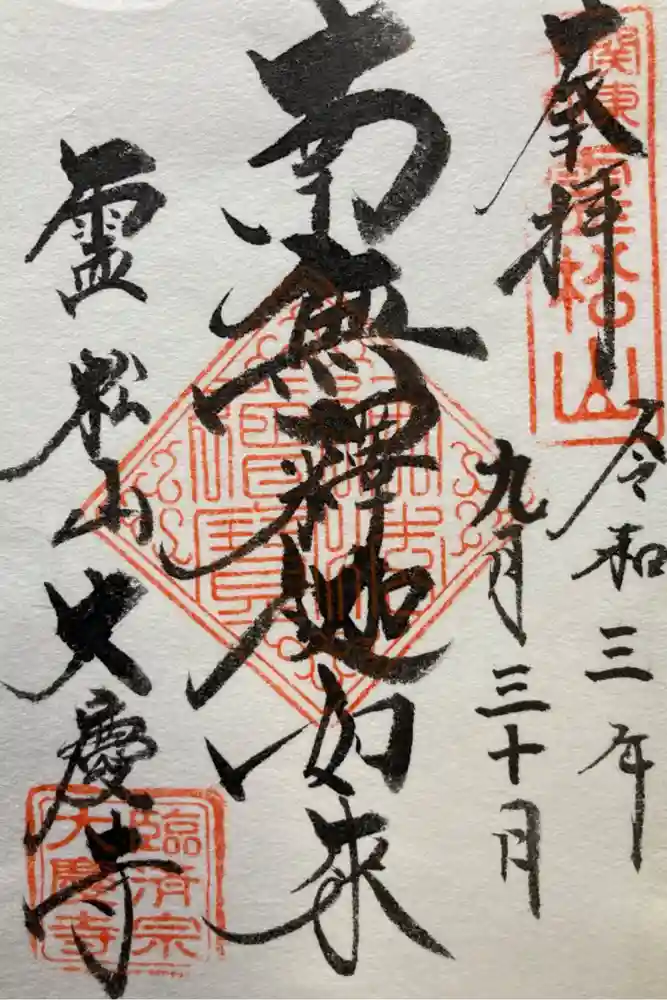 奉拝
関東
霊松山
令和三年
九月三十日
南無釋迦如來
佛法僧寶
霊松山大慶寺
臨済宗
大慶寺